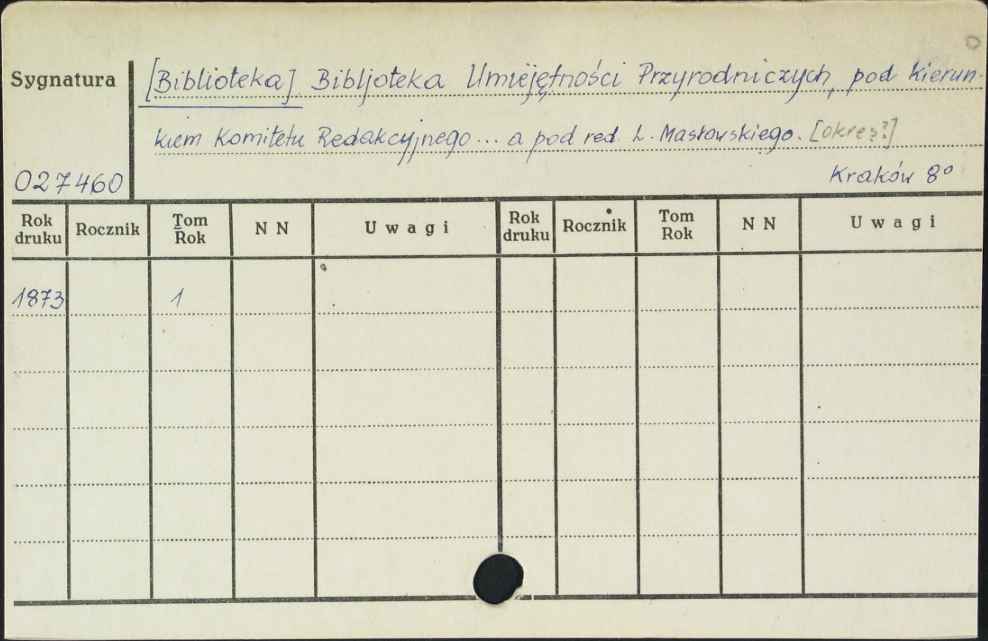 Sygnatura [Biblioteka] Bibljoteka Umiejętności Przyrodniczych, pod kierun-
kiem Komitetu Redakcyjnego... a pod red. L. Masłowskiego. [okres?]
027460 Kraków 8º
Rok druku Rocznik Tom Rok N N Uwagi Rok druku Rocznik Tom Rok N N Uwagi
1873 1